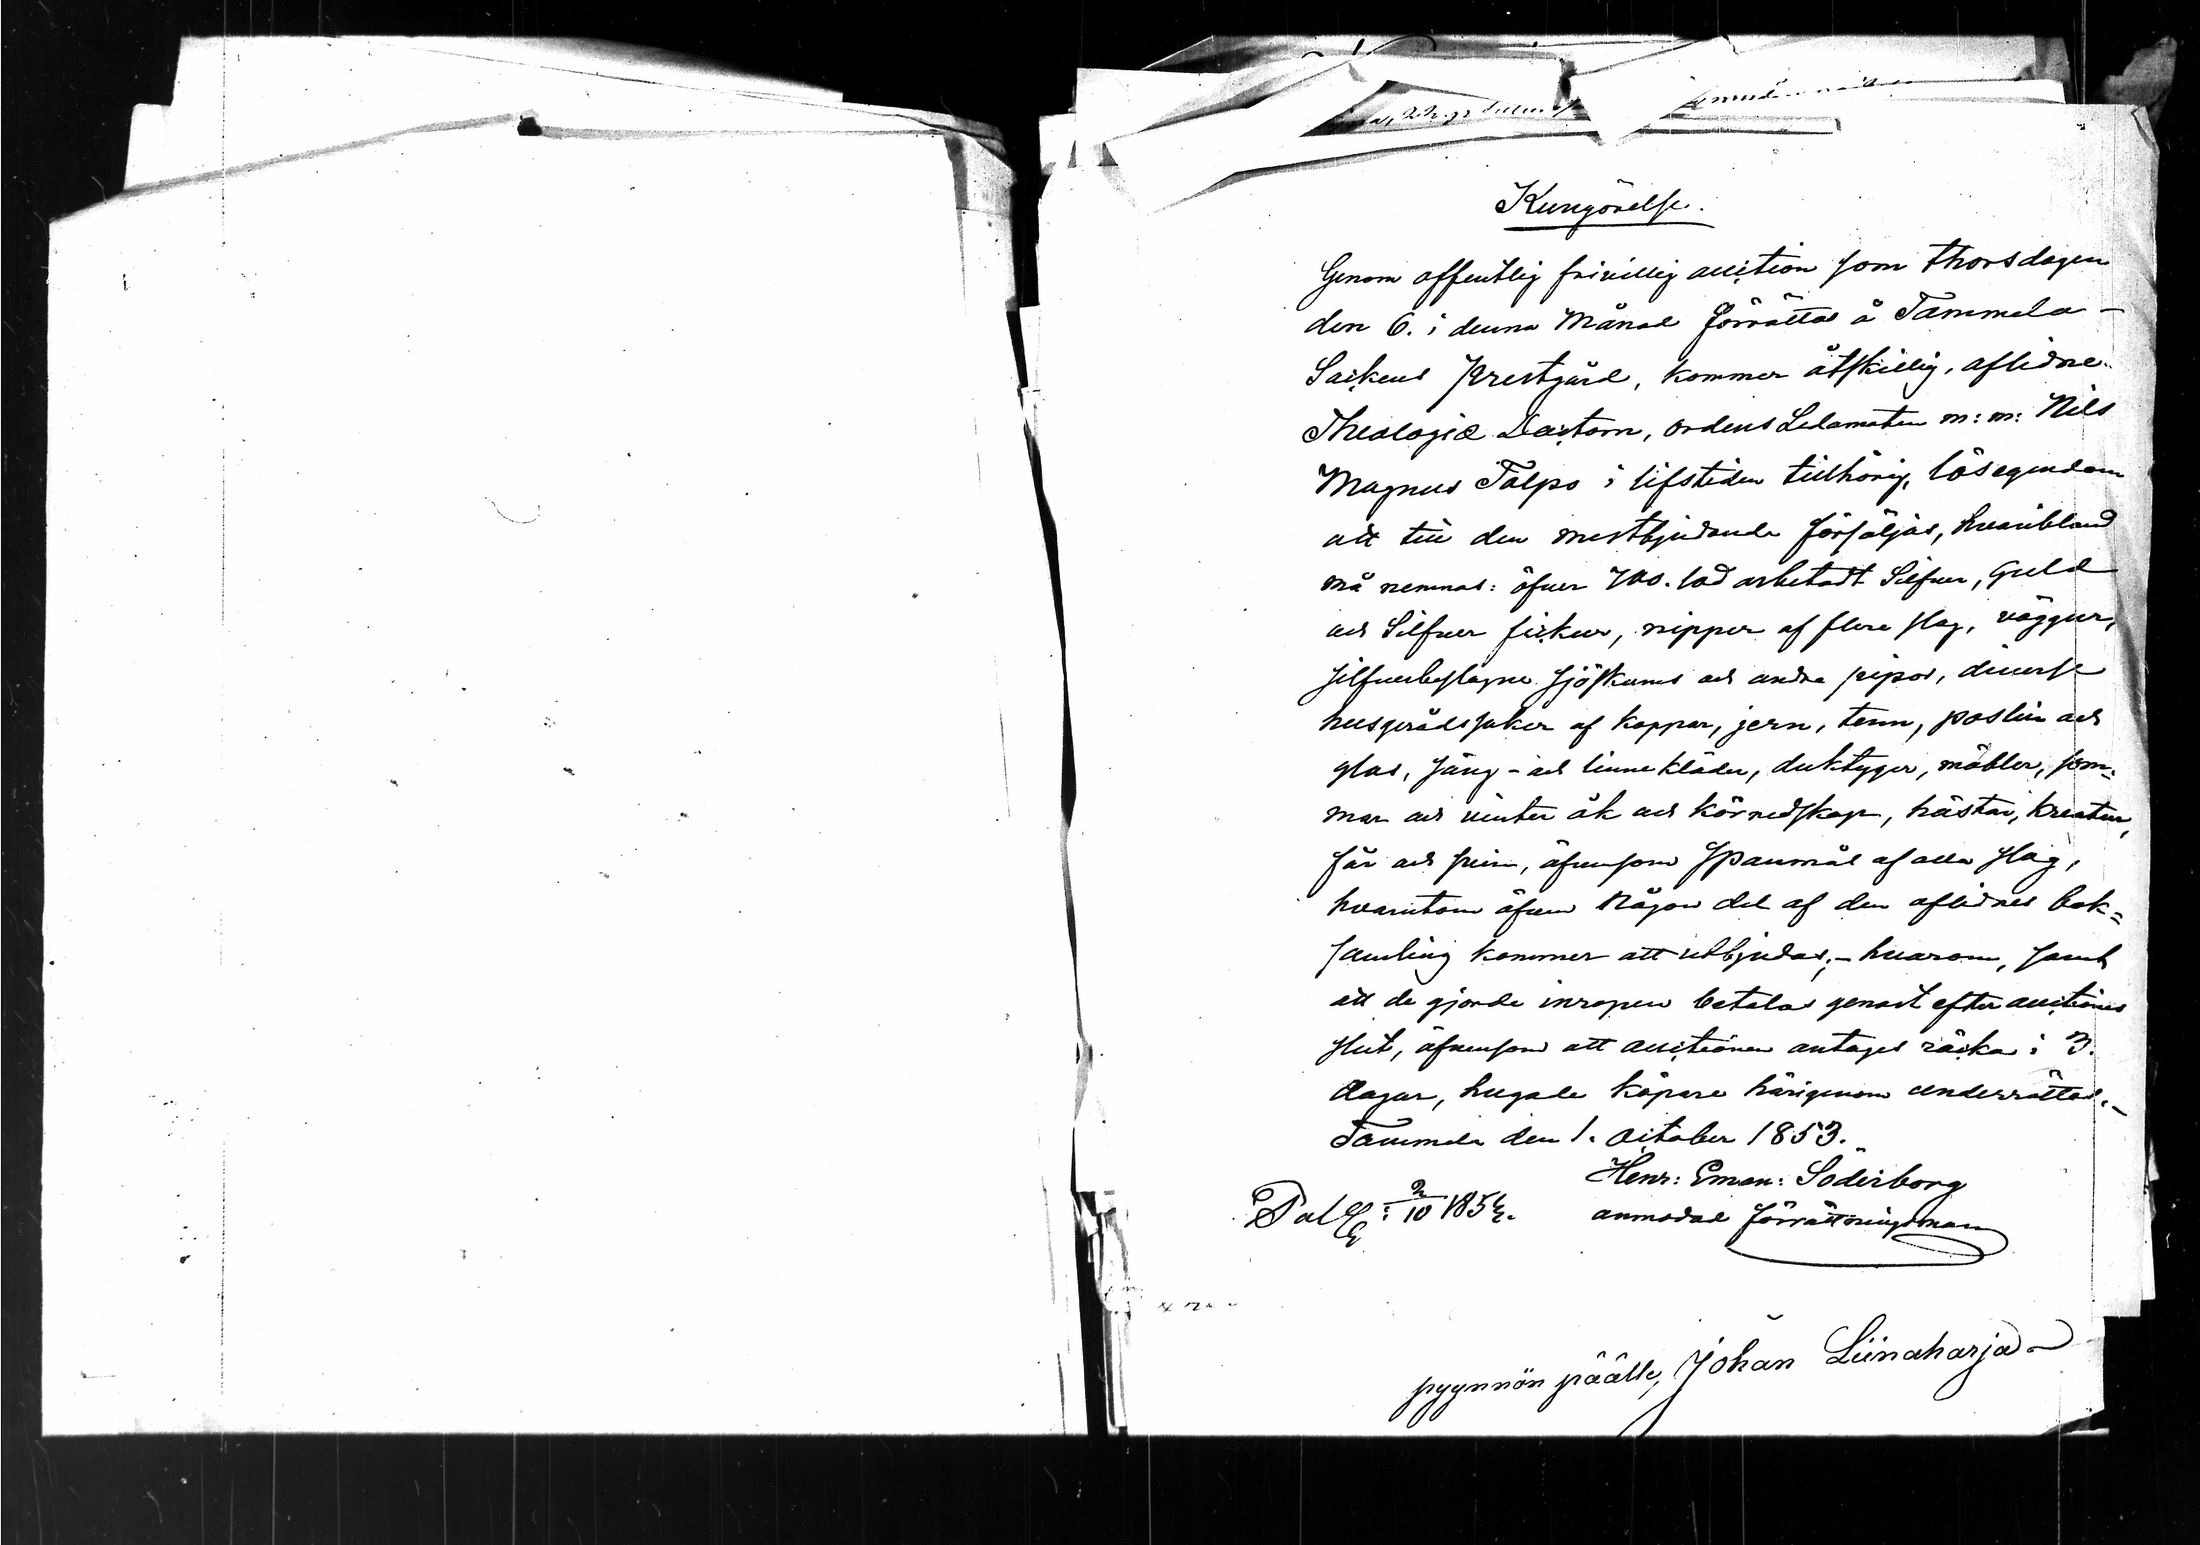 Kungörelse.
Genom offentlig frivillig auction som thorsdagen
den 6. i denna Månad förrättas å Tammela-
Sockens Prestgård, kommer åtskillig, aflidne
Theologiæ Doctorn, Ordens Ledamoten m: m: Nils
Magnus Tolpo i lifstiden tillhörig, lösegendom
att till den mestbjudande försäljas, hvaribland
må nemnas: öfver 700. lod arbetadt Silfver, Guld
och Silfver fickur, nipper af flere slag, väggur,
silfverbeslagne sjöskums och andra pipor, diverse
husgerådssaker af koppar, jern, tenn, postlin och
glas, säng- och linnekläder, duktyger, möbler, som-
mar och vinter åk och körredskap, hästar, kreatur,
får och svin, äfvensom Spanmål af alla slag,
hvarutom äfven Någon del af den aflidnes bok=
samling kommer att utbjudas;- hvarom, samt
att de gjorde inropen betalas genast efter auctionens
slut, äfvensom att auctionen antages räcka i 3.
dagar, hugade köpare härigenom underrättas.-
Tammela den 1. October 1853.
Henr: Eman: Söderborg
anmodad förrättningsman
2/10 185
pyynnön päälle, Johan Liinaharja